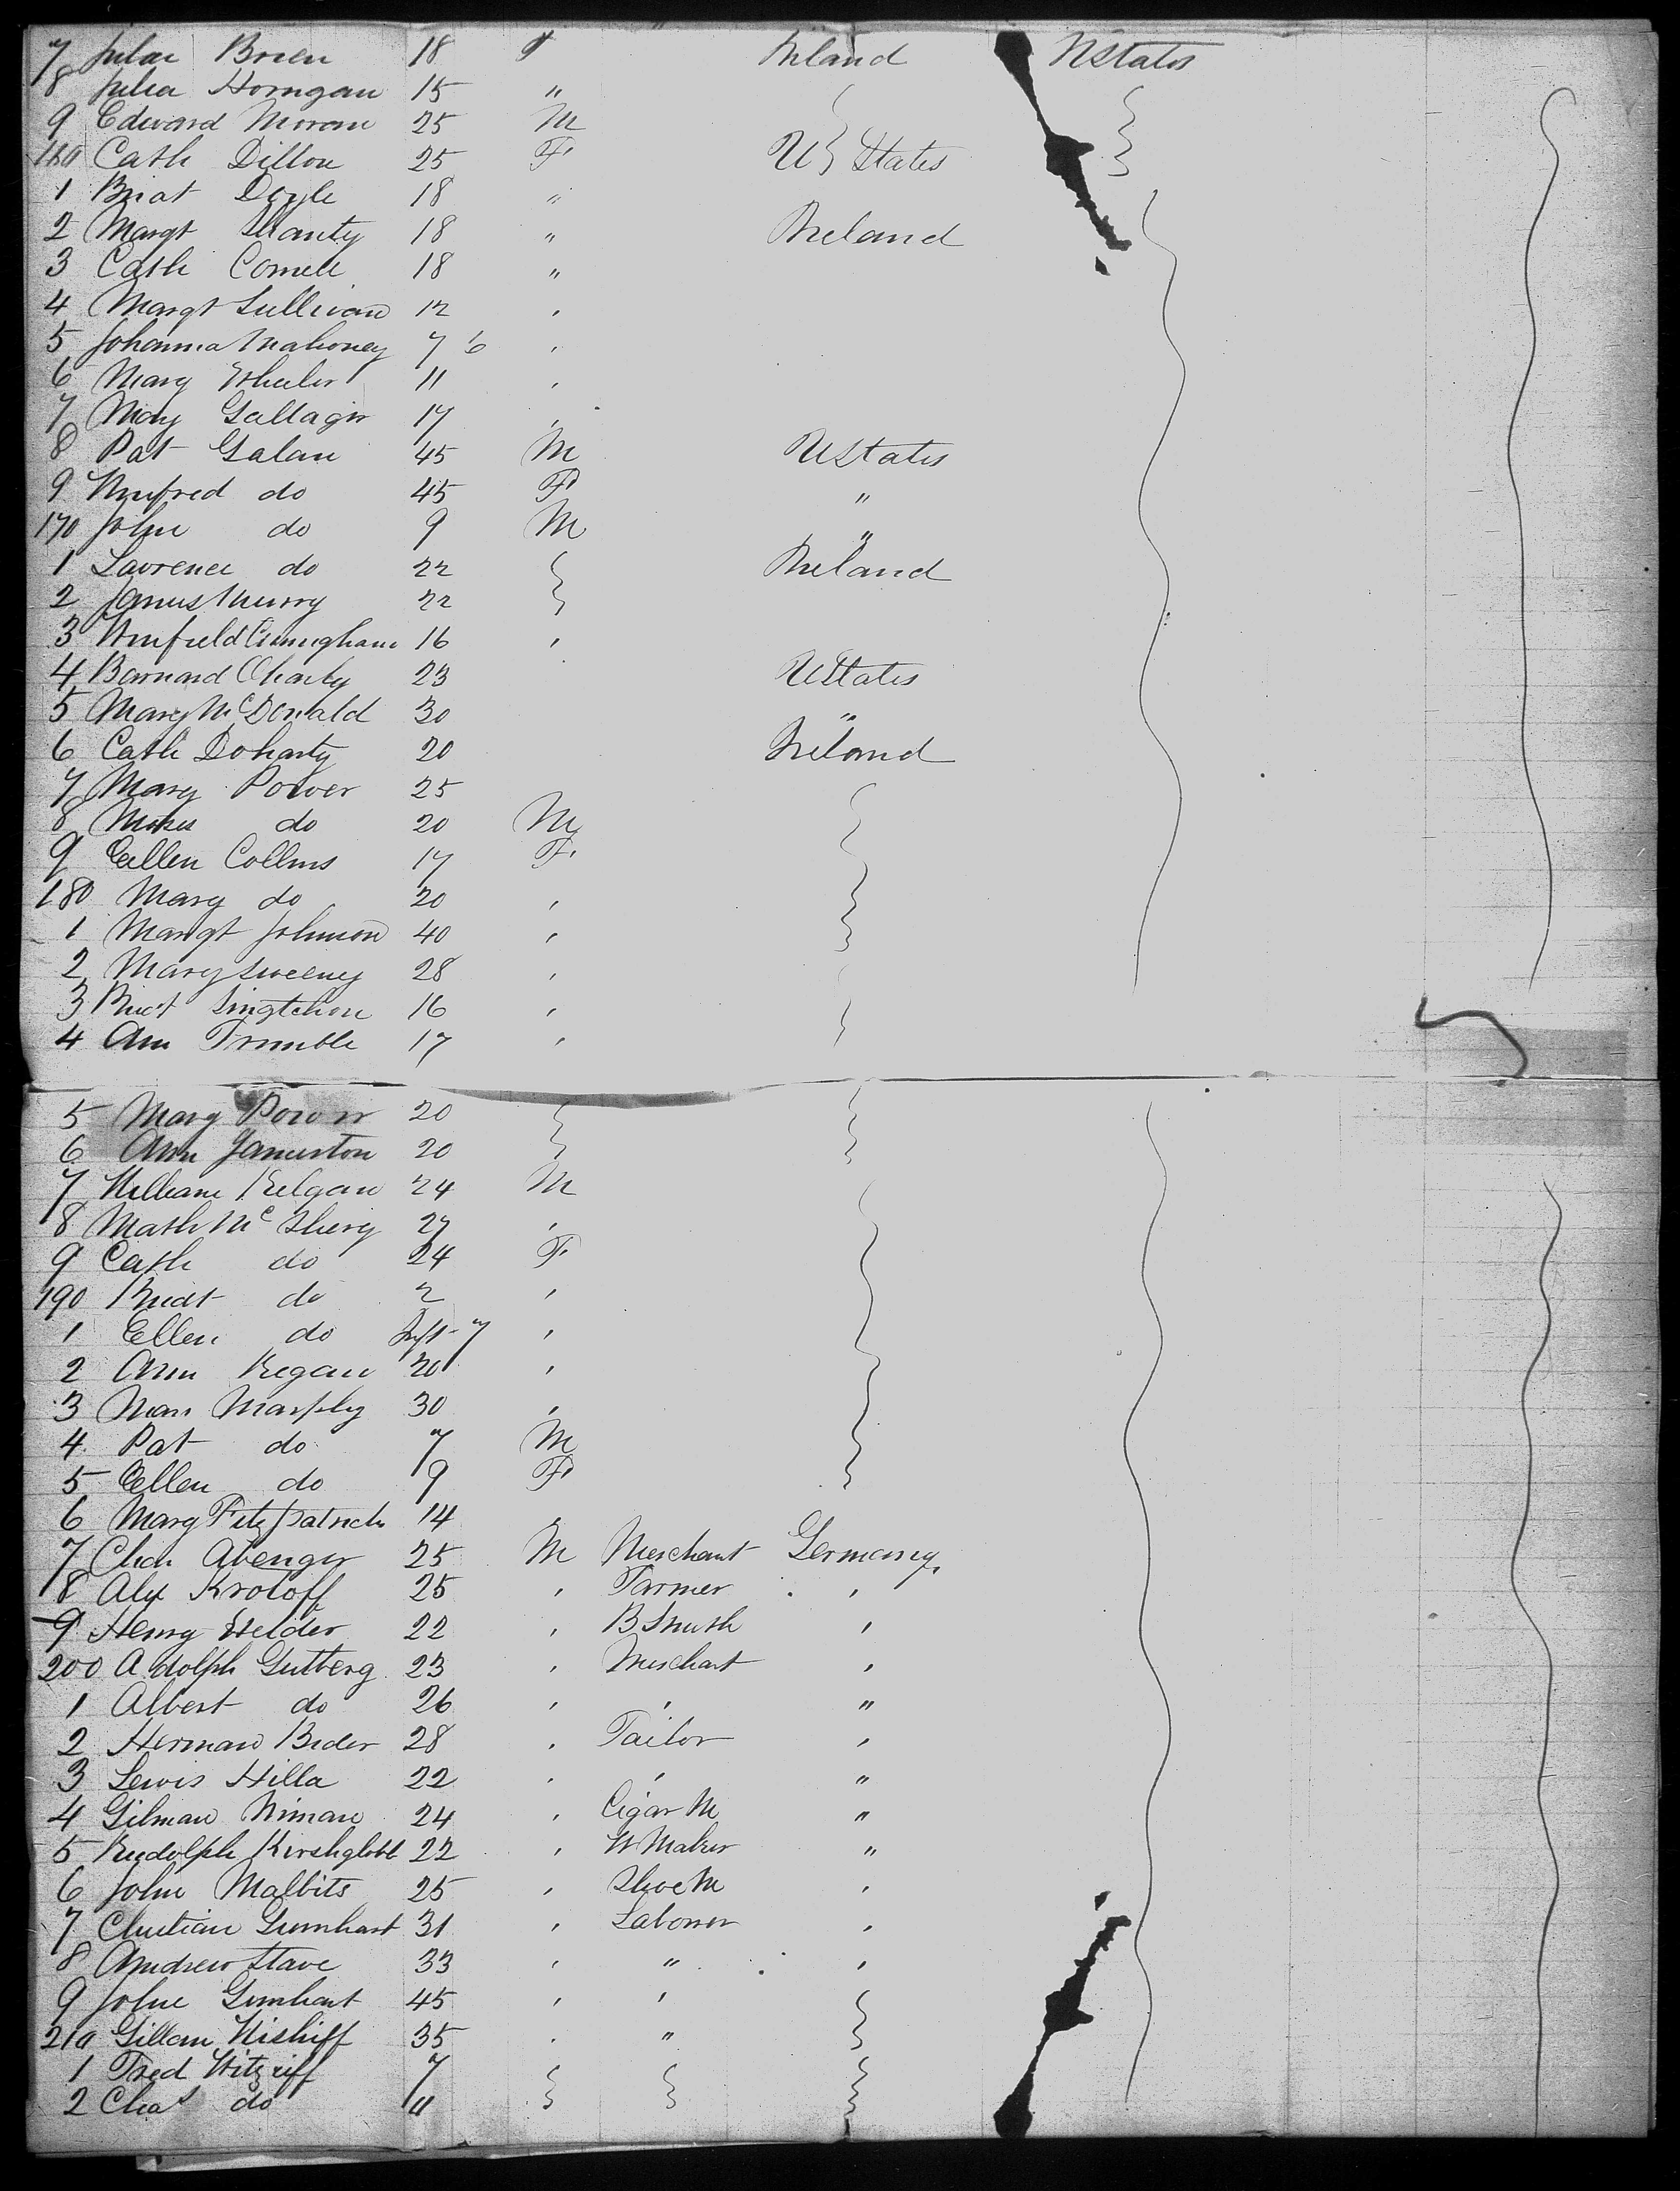 7 Julia Brien 18 F Ireland UStates
8 Julia Horngan 15 "
9 Edward Moran 25 M
160 Cath Dillon 25 F U States
1 Doyle 18 "
2 Margt 18 " Ireland
3 Cath Connell 18 "
4 Margt Sullivan 12
5 Johanna Mahoney 7 6
6 Mary Wheeler 11
7 Mary Gallagir 17
8 Pat Galan 45 M UStates
9 Winfred do 45 F "
170 John do 9 M "
1 Lawrence do 22 Ireland
2 James Murry 22
3 Winfield Cunnigham 16
4 Barnard Charly 23 UStates
5 Mary McDonald 30 "
6 Cath Doharty 20 Ireland
7 Mary Power 25
8 Moses do 20 M
9 Ellen Collins 17 F
180 Mary do 20
1 Margt Johnson 40
2 Mary Sweeney 28
3 16
4 Ann Trimble 17
5 Mary Power 20
6 Ann Jamerston 20
7 William Kelgan 24 M
8 Math Mc Shery 27
9 Cath do 24 F
190 Bridt do 2
1 Ellen do Inft 7
2 Ann Regan 20
3 Mary Murphy 30
4 Pat do 7 M
5 Ellen do 9 F
6 Mary Fitzpatrick 14
7 Chas Abenger 25 M Merchant Germany
8 Alex Krotoff 25 Farmer
9 Henry Welder 22 B Smith
200 Adolph Gutberg 23 Merchant
1 Albert do 26 "
2 Herman Bider 28 Tailor
3 Lewis Hilla 22 "
4 Gilman Niman 24 Cigar M "
5 Rudolph Kirshglobb 22 W Maker "
6 John Malbits 25 Shoe M
7 Christian Gumhart 31 Laborer
8 Andrew Stave 33 "
9 John Gumhart 45
210 Gillam Wishiff 35 "
1 Fred Witzriff 7
2 Chas do 11